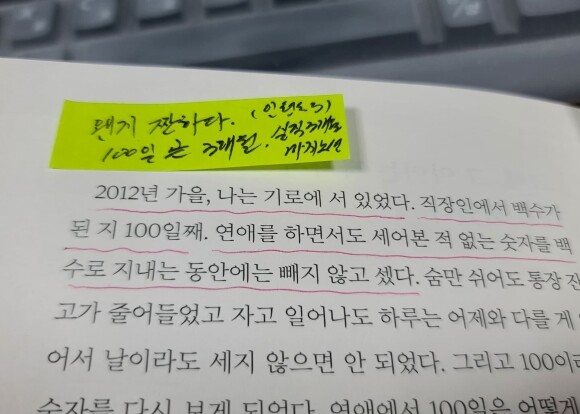 왠지 짠하다. (인턴도 3)
100일 은 3개월. 실직 3개월
2012년 가을, 나는 기로에 서 있었다. 직장인에서 백수가
된 지 100일째. 연애를 하면서도 세어본 적 없는 숫자를 백
수로 지내는 동안에는 빼지 않고 셌다. 숨만 쉬어도 통장 잔
고가 줄어들었고 자고 일어나도 하루는 어제와 다를 게
어서 날이라도 세지 않으면 안 되었다. 그리고 100이라
숫자를 다시 보게 되었다. 연애에서 100일은 어떻게